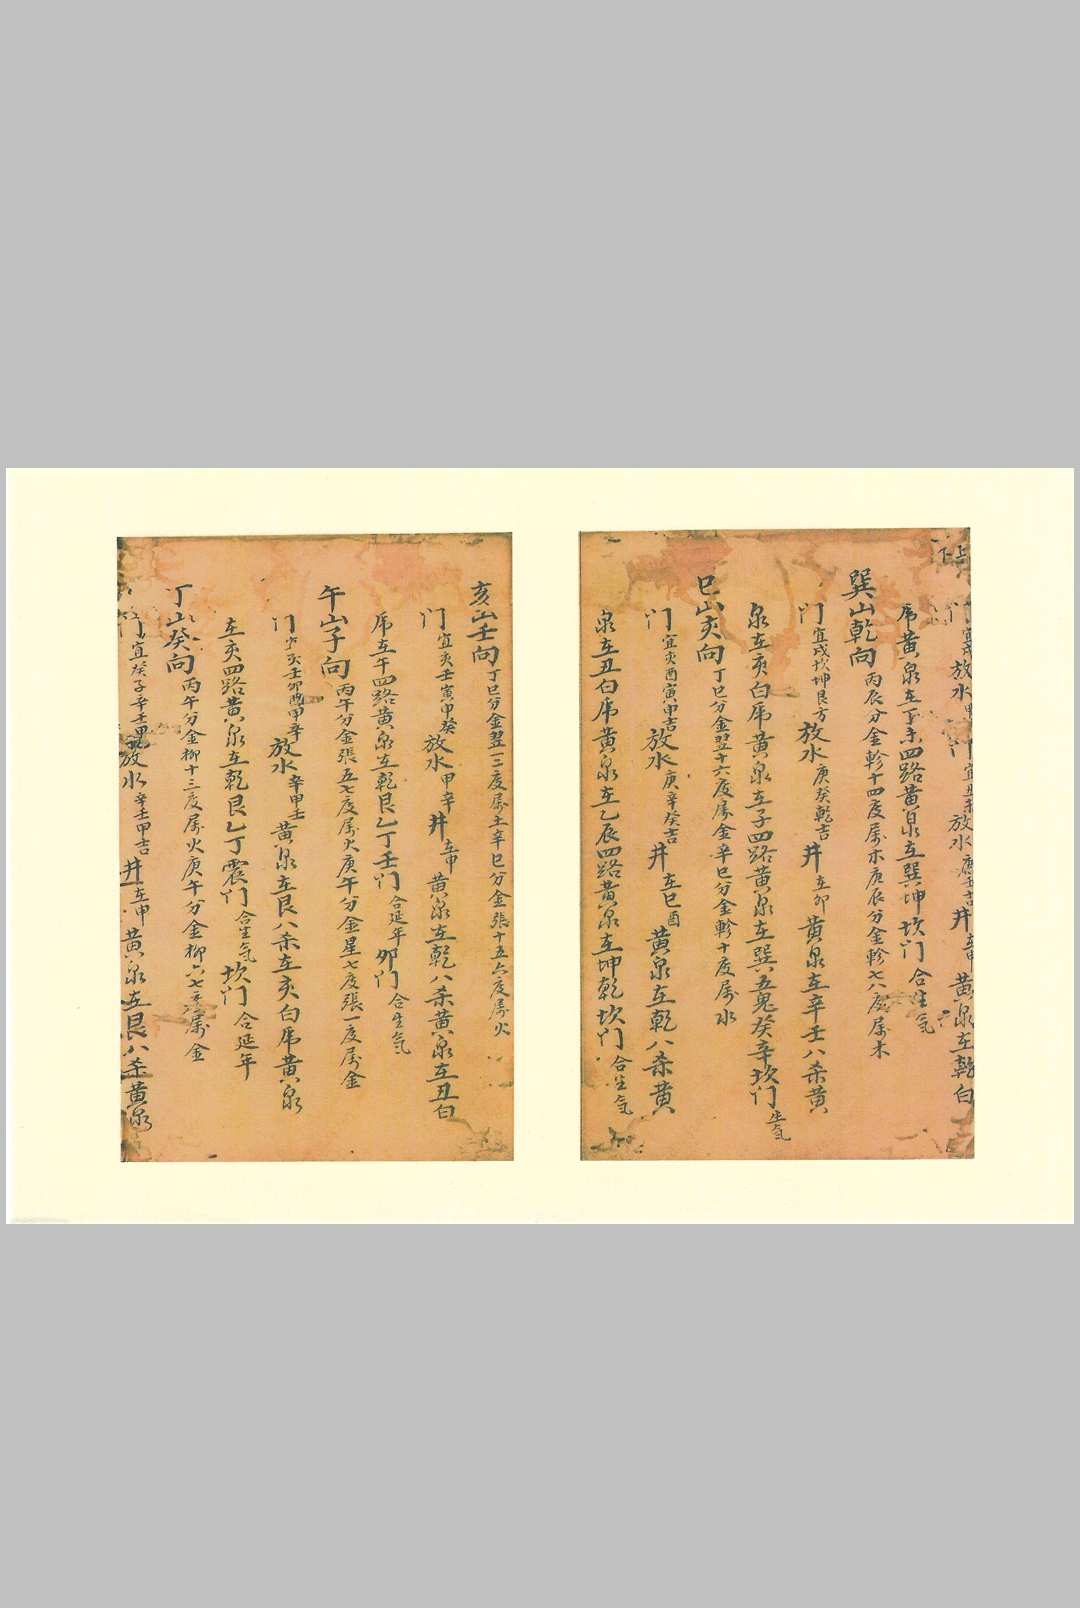 上下
门宜 放水 门宜丑未 放水 吉井在申 黄泉在乾白
虎黄泉在丁未四路黄泉在巽坤坎门合生气
巽山乾向丙辰分金轸十四度属木庚辰分金轸七八度属木
门宜戌坎坤艮方放水庚癸乾吉井在卯黄泉在辛壬八杀黄
泉在亥白虎黄泉在子四路黄泉在巽五鬼癸辛坎门生气
巳山亥向丁巳分金翌十六度属金辛巳分金轸十度属水
门宜亥酉寅甲吉放水庚辛癸吉井在巳酉黄泉在乾八杀黄
泉在丑白虎黄泉在乙辰四路黄泉在坤乾坎门合生气
亥山壬向丁巳分金翌一二度属土辛巳分金張十五六度属火
门宜亥壬寅申癸放水甲辛井在申黄泉在乾八杀黄泉在丑白
虎在午四路黄泉在乾艮乙丁壬门合延年卯门合生气
午山子向丙午分金張五七度属火庚午分金星七度張一度属金
门宜亥壬卯酉甲辛放水辛甲壬黄泉在艮八杀在亥白虎黄泉
在亥四路黄泉在乾艮乙丁震门合生气坎门合延年
丁山癸向丙午分金柳十三度属火庚午分金柳六七度属金
门宜癸子辛壬甲放水辛壬甲吉井在申黄泉在艮八杀黄泉